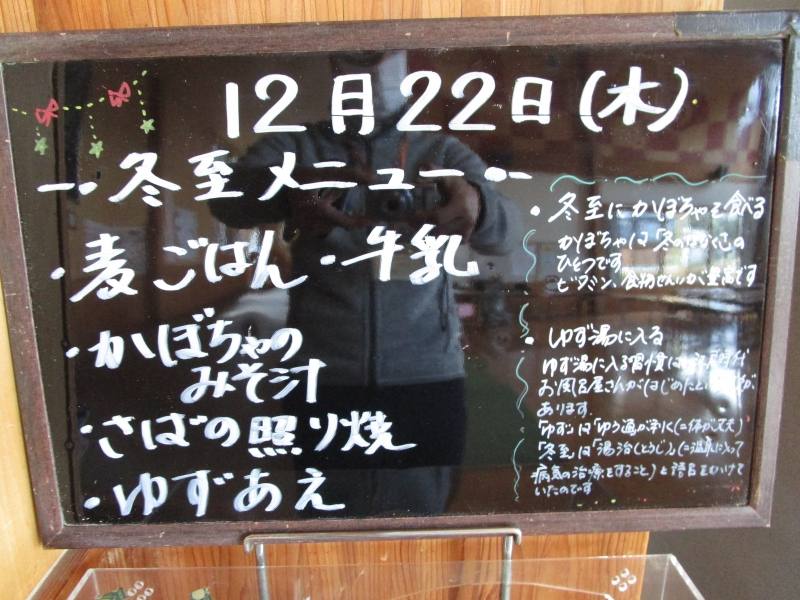 12月22日(木)
冬至メニュー
・麦ごはん ・牛乳
・かぼちゃの
みそ汁
・さばの照り焼
・ゆずあえ
・冬至にかぼちゃを食べる
かぼちゃは「冬の
ひとつです
ビタミン、食物せんいが豊富です
・ゆず湯に入る
ゆず湯に入る習慣は江戸時代
お風呂屋さんがはじめたと
あります.
「ゆず」は「ゆう通が利く(=体が丈夫)
「冬至」は「湯治(とうじ)」(=温泉に入って
病気の治療をすること)と語呂をかけて
いたのです